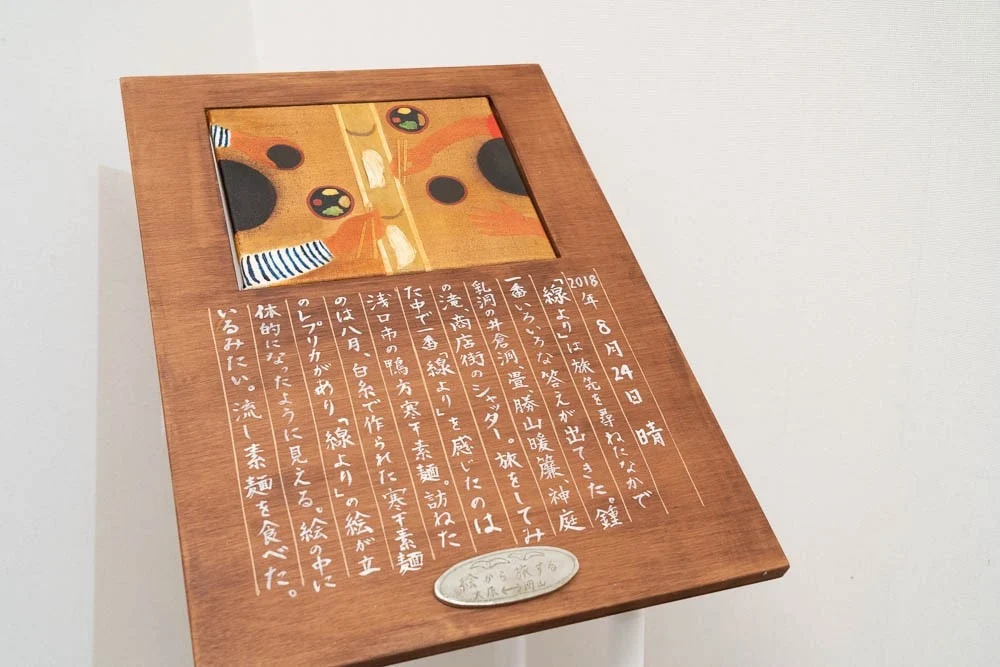 2018年8月24日 晴
「線より」は旅先を尋ねたなかで
一番いろいろな答えが出てきた。鍾
乳洞の井倉洞、畳、勝山暖簾、神庭
の滝、商店街のシャッター。旅をしてみ
た中で一番「線より」を感じたのは
浅口市の鴨方寒干素麺。訪ねた
のは八月、白糸で作られた寒干素麺
のレプリカがあり「線より」の絵が立
体的になったように見える。絵の中に
いるみたい。流し素麺を食べた。
絵から旅する
大原⟷岡山